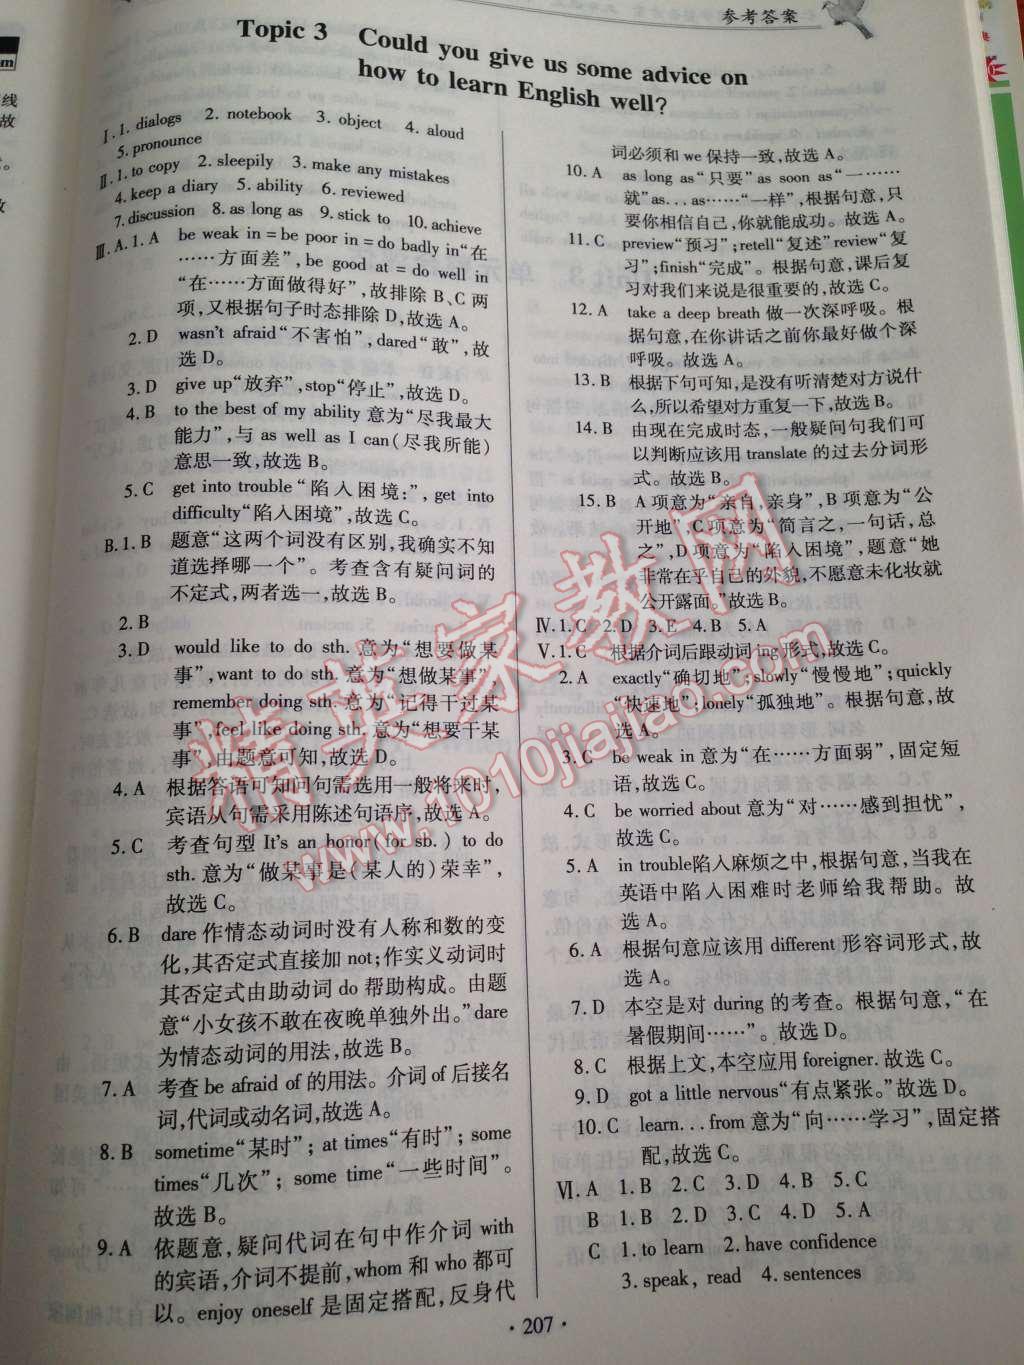 参考答案
Topic 3 Could you give us some advice on
how to learn English well?
Ⅰ.1. dialogs 2. notebook 3. object 4. aloud
5. pronounce
Ⅱ.1. to copy 2. sleepily 3. make any mistakes
4. keep a diary 5. ability 6. reviewed
7. discussion 8. as long as 9. stick to 10. achieve
Ⅲ.A.1.A be weak in=be poor in=do badly in“在
……方面差”, be good at = do well in
“在……方面做得好”,故排除 B、C 两
项,又根据句子时态排除 D,故选 A。
2.D wasn't afraid“不害怕”,dared“敢”,故
选 D。
3.D give up“放弃”,stop“停止”,故选 D。
4.B to the best of my ability 意为“尽我最大
能力”,与 as well as I can(尽我所能)
意思一致,故选 B。
5.C get into trouble“陷入困境:”, get into
difficulty“陷入困境”,故选 C。
B.1.B 题意“这两个词没有区别,我确实不知
道选择哪一个”。考查含有疑问词的
不定式,两者选一,故选 B。
2.B
3.D would like to do sth. 意为“想要做某
事”,want to do sth. 意为“想做某事”
remember doing sth. 意为“记得干过某
事”,feel like doing sth. 意为“想要干某
事”,由题意可知,故选 D。
4.A 根据答语可知问句需选用一般将来时,
宾语从句需采用陈述句语序,故选 A。
5.C 考查句型 It's an honor(for sb.) to do
sth. 意为“做某事是(某人的)荣幸”,
故选 C。
6.B dare 作情态动词时没有人称和数的变
化,其否定式直接加 not;作实义动词时
其否定式由助动词 do 帮助构成。由题
意“小女孩不敢在夜晚单独外出。”dare
为情态动词的用法,故选 B。
7.A 考查 be afraid of 的用法。介词 of 后接名
词,代词或动名词,故选 A。
8.B sometime“某时”; at times“有时”; some
times“几次”; some time“一些时间”。
故选 B。
9.A 依题意,疑问代词在句中作介词 with
的宾语,介词不提前,whom 和 who 都可
以。enjoy oneself 是固定搭配,反身代
词必须和 we 保持一致,故选 A。
10.A as long as“只要”as soon as“一……
就”as...as……“一样”,根据句意,只
要你相信自己,你就能成功。故选 A。
11.C preview“预习”;retell“复述”review“复
习”;finish“完成”。根据句意,课后复
习对我们来说是很重要的,故选 C。
12.A take a deep breath 做一次深呼吸。根
据句意,在你讲话之前你最好做个深
呼吸。故选 A。
13.B 根据下句可知,是没有听清楚对方说什
么,所以希望对方重复一下,故选 B。
14.B 由现在完成时态,一般疑问句我们可
以判断应该用 translate 的过去分词形
式。故选 B。
15.B A 项意为“亲自,亲身”,B 项意为“公
开地”,C 项意为“简言之,一句话,总
之”,D 项意为“陷入困境”,题意“她
非常在乎自己的外貌,不愿意未化妆就
公开露面。”故选 B。
Ⅳ.1.C 2.D 3.E 4.B 5.A
Ⅴ.1.C 根据介词后跟动词 ing 形式,故选 C。
2.A exactly“确切地”;slowly“慢慢地”;quickly
“快速地”;lonely“孤独地”。根据句意,故
选 A。
3.C be weak in 意为“在……方面弱”,固定短
语,故选 C。
4.C be worried about 意为“对……感到担忧”,
故选 C。
5.A in trouble陷入麻烦之中,根据句意,当我在
英语中陷入困难时老师给我帮助。故
选 A。
6.A 根据句意应该用 different 形容词形式,故
选 A。
7.D 本空是对 during 的考查。根据句意,“在
暑假期间……”。故选 D。
8.C 根据上文,本空应用 foreigner. 故选 C。
9.D got a little nervous“有点紧张。”故选 D。
10.C learn...from 意为“向……学习”,固定搭
配,故选 C。
Ⅵ.A 1.B 2.C 3.D 4.B 5.C
B 1.B 2.D 3.C 4.D 5.A
C 1. to learn 2. have confidence
3. speak, read 4. sentences
· 207 ·
精英家教网
www.1010jiajiao.com